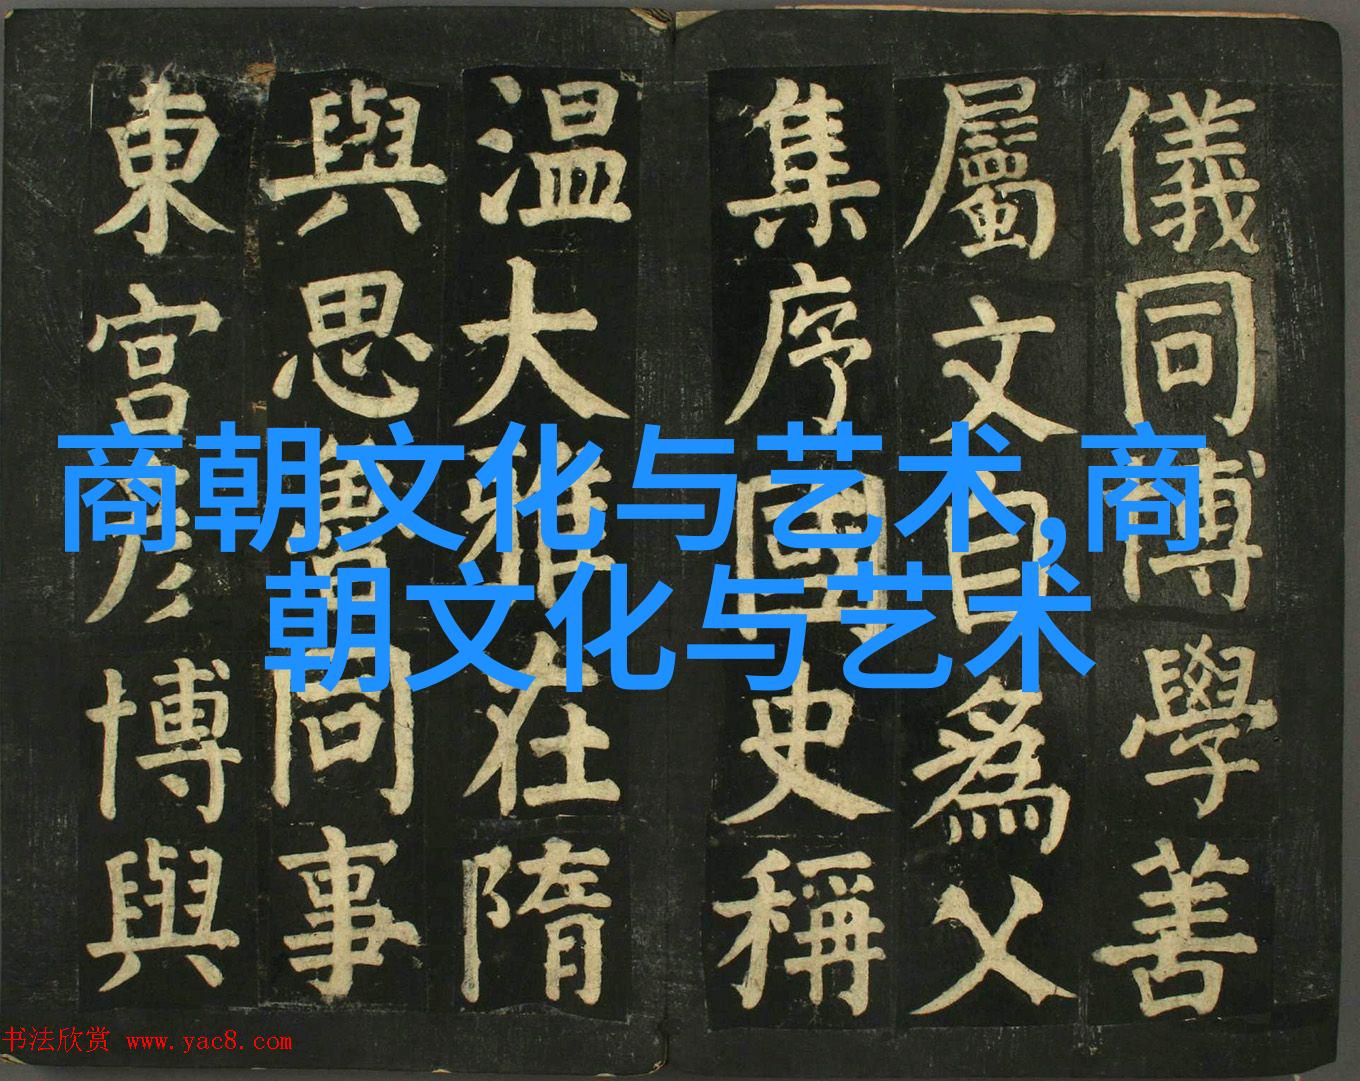 儀同博學善
屬文自為父
集序國史稱
温大雅在隋
與思魯同事
東宫彦博與
商朝文化与艺术,商
朝文化与艺术
书法欣赏 www.yac8.com